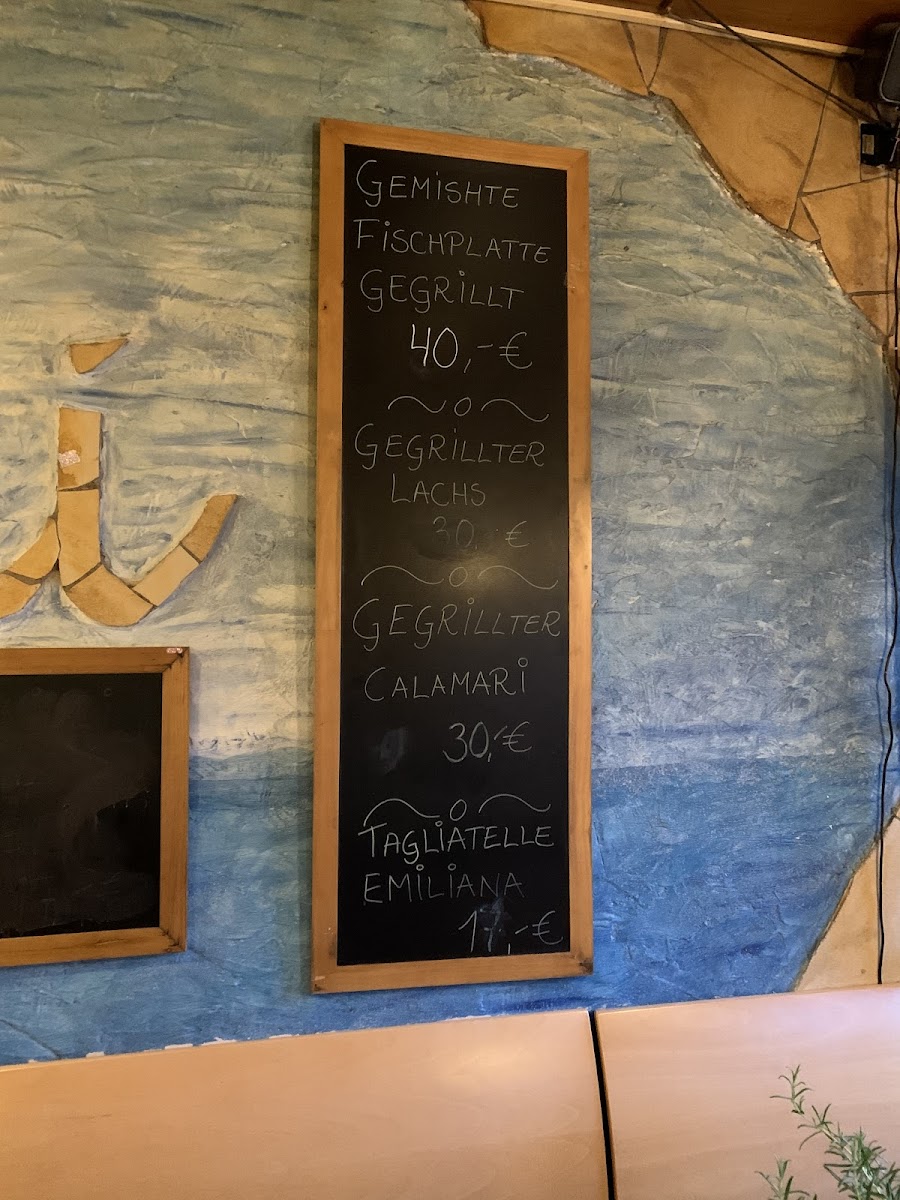 GEMISHTE
FISCHPLATTE
GEGRILLT
40,-€
GEGRILLTER
LACHS
30,-€
GEGRILLTER
CALAMARI
30,-€
TAGLIATELLE
EMILIANA
17,-€
i